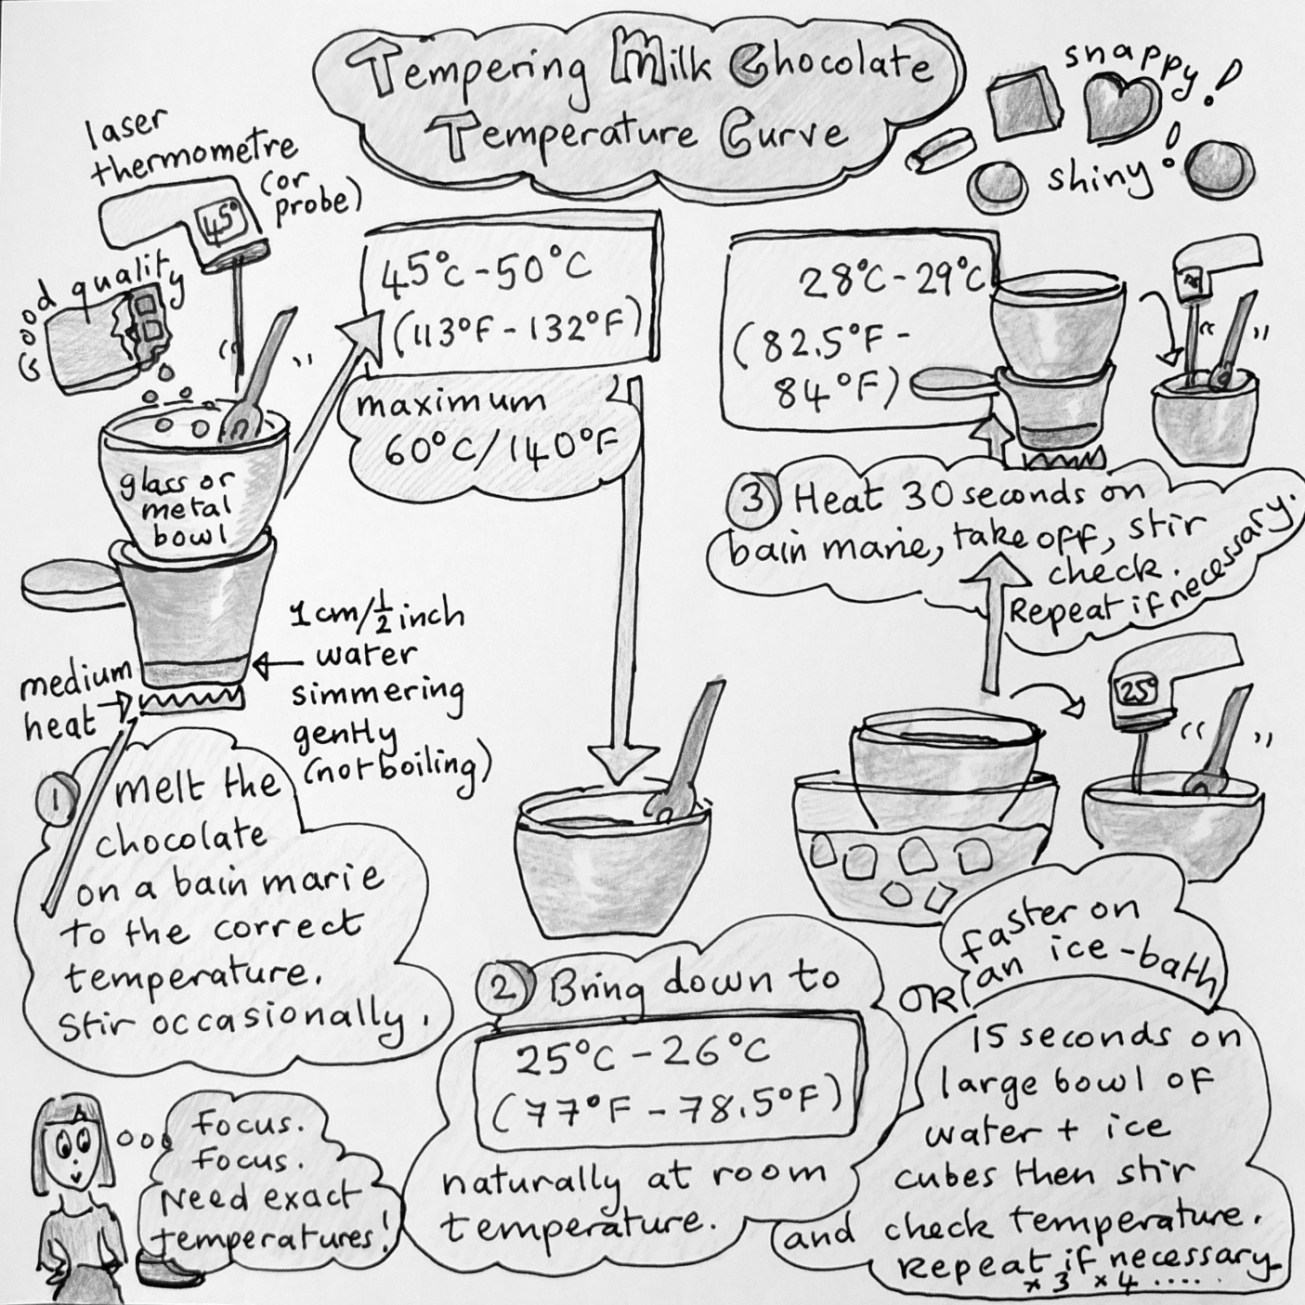 Tempering Milk Chocolate
Temperature Curve
snappy!
shiny!
laser
thermometre
(or
probe)
45°
good quality
glass or
metal
bowl
1cm/½ inch
water
simmering
gently
(not boiling)
medium
heat
1 melt the
chocolate
on a bain marie
to the correct
temperature.
Stir occasionally.
45°C - 50°C
(113°F - 132°F)
maximum
60°C/140°F
2 Bring down to
25°C - 26°C
(77°F - 78.5°F)
naturally at room
temperature.
OR
faster on
an ice-bath
15 seconds on
large bowl of
water + ice
cubes then stir
and check temperature.
Repeat if necessary
x3 x4 .....
25°
3 Heat 30 seconds on
bain marie, take off, stir
check.
Repeat if necessary.
28°C - 29°C
(82.5°F -
84°F)
Focus.
Focus.
Need exact
temperatures!